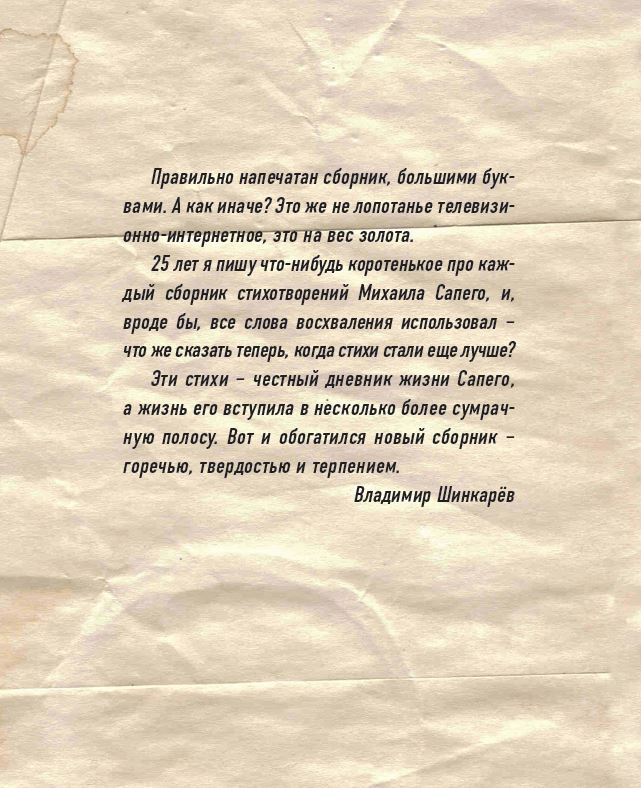 Правильно напечатан сборник, большими бук-
вами. А как иначе? Это же не лопотанье телевизи-
онно-интернетное, это на вес золота.
25 лет я пишу что-нибудь коротенькое про каж-
дый сборник стихотворений Михаила Сапего, и,
вроде бы, все слова восхваления использовал –
что же сказать теперь, когда стихи стали еще лучше?
Эти стихи – честный дневник жизни Сапего,
а жизнь его вступила в несколько более сумрач-
ную полосу. Вот и обогатился новый сборник –
горечью, твердостью и терпением.
Владимир Шинкарёв